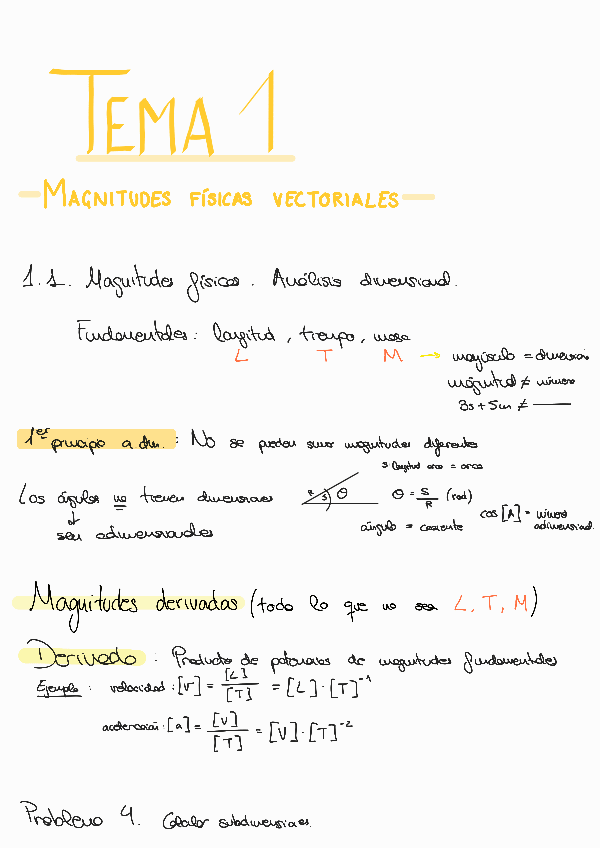 TEMA 1
MAGNITUDES FÍSICAS VECTORIALES
1.1. Magnitudes físicas. Análisis dimensional.
Fundamentales: longitud, tiempo, masa
L T M → mayúscula = dimensión
magnitud ≠ número
3s + 5m ≠ ——
1er principio a. dim.: No se pueden sumar magnitudes diferentes
s longitud arco = arco
Los ángulos no tienen dimensiones
R s θ θ = S/R (rad)
ángulo = cociente
cos [A] = número adimensional.
↓
son adimensionales
Magnitudes derivadas (todo lo que no sea L, T, M)
Derivada: Producto de potencias de magnitudes fundamentales
Ejemplo: velocidad: [V] = [L]/[T] = [L]·[T]⁻¹
aceleración: [a] = [V]/[T] = [V]·[T]⁻²
Problema 4. Calcular subdimensiones.